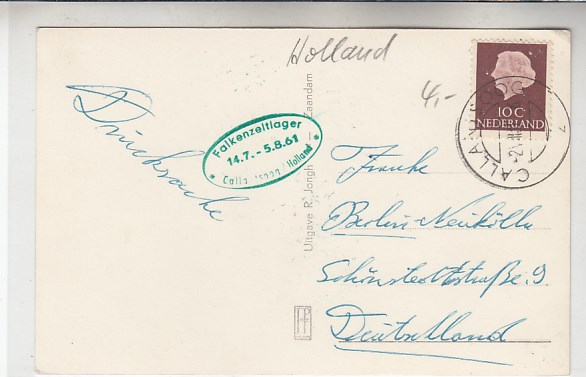 Holland
4,-
10 C
NEDERLAND
CALLANTSOOG
Drucksache
Falkenzeltlager
14.7. - 5.8.61
Holland
Uitgave R. Jongh Zaandam
Franke
Berlin-Neukölln
Schönstedtstraße 9.
Deutschland